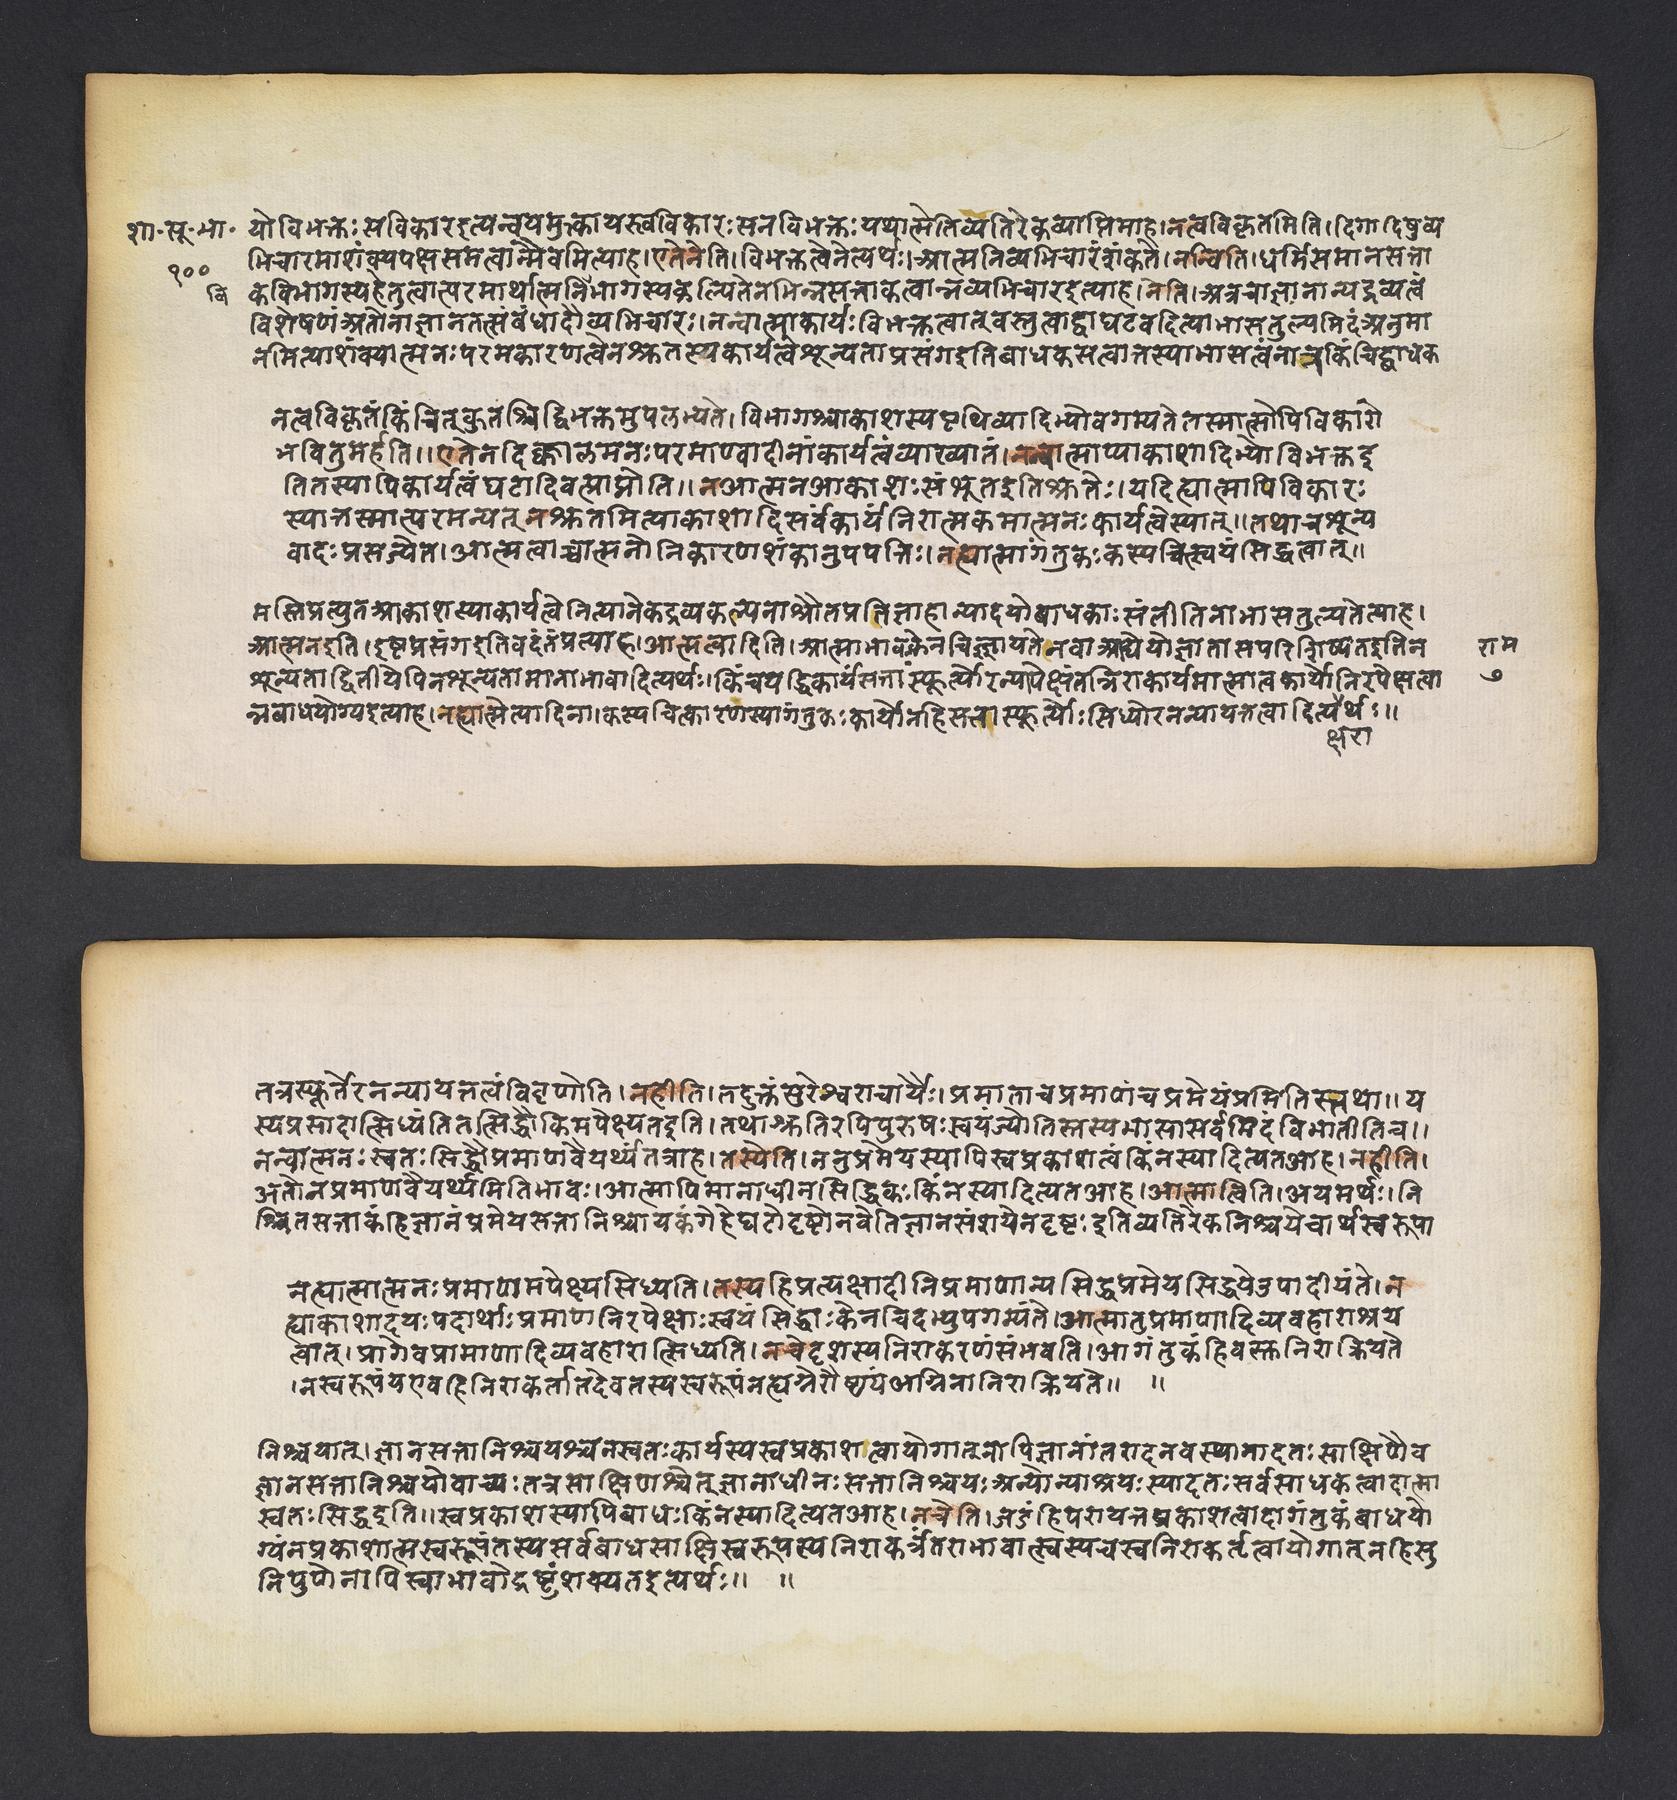 शा॰सू॰भा॰ यो विभक्तः स विकार इत्यन्वयमुक्ता यस्त्वविकारः स न विभक्तः यथात्मेति व्यतिरेकव्याप्तिमाह। नत्वविकृतमिति। दिगादिषु व्य
१००
वि
भिचारमाशंक्य पक्षसमत्वान्मैवमित्याह। एतेनेति। विभक्तत्वेनेत्यर्थः। आत्मनि व्यभिचारं शंकते। नन्विति। धर्मिसमानसत्ता
कविभागस्य हेतुत्वात्परमार्थात्मनि विभागस्य कल्पितेन भिन्नसत्ताकत्वान्न व्यभिचार इत्याह। नेति। अत्र चाज्ञानान्यद्रव्यत्वं
विशेषणं अतो नाज्ञानतत्संबंधादौ व्यभिचारः। नन्वात्मा कार्यः विभक्तत्वात् वस्तुत्वाद्वा घटवदित्याभासतुल्यमिदं अनुमा
नमित्याशंक्यात्मनः परमकारणत्वेन श्रुतस्य कार्यत्वे शून्यताप्रसंग इति बाधकसत्वात्तस्याभासत्वं नात्र किंचिद्बाधक
नत्वविकृतं किंचित् कुतश्चिद्विभक्तमुपलभ्यते। विभागश्चाकाशस्य पृथिव्यादिभ्योवगम्यते तस्मात्सोपि विकारो
भवितुमर्हति॥ एतेन दिक्कालमनःपरमाण्वादीनां कार्यत्वं व्याख्यातं। नन्वात्माप्याकाशादिभ्यो विभक्त इ
ति तस्यापि कार्यत्वं घटादिवत्प्राप्नोति॥ न आत्मन आकाशः संभूत इति श्रुतेः। यदि ह्यात्मापि विकारः
स्यात्तस्मात्परमन्यत् न श्रुतमित्याकाशादि सर्वं कार्यं निरात्मकमात्मनः कार्यत्वे स्यात्॥ तथा च शून्य
वादः प्रसज्येत। आत्मत्वाच्चात्मनो निकारणशंकानुपपत्तिः। नह्यात्मागंतुकः कस्यचित्स्वयंसिद्धत्वात्॥
मस्ति प्रत्युत आकाशस्याकार्यत्वे नित्यानेकद्रव्यकल्पना श्रौतप्रतिज्ञाहान्यादयो बाधकाः संतीति नाभासतुल्यतेत्याह।
आत्मन इति। इष्टप्रसंग इति वदंतं प्रत्याह। आत्मत्वादिति। आत्माभावः केनचिज्ज्ञायते न वा आद्ये यो ज्ञाता स परिशिष्यत इति न
राम
७
शून्यता द्वितीयेपि न शून्यता मानाभावादित्यर्थः। किंच यद्धि कार्यं सत्तास्फूर्त्योरन्यापेक्षं तन्निराकार्यमात्मा त्वकार्यो निरपेक्षत्वा
न्न बाधयोग्य इत्याह। नह्यात्मेत्यादिना। कस्यचित्कारणस्यागंतुकः कार्यो नहि सत्तास्फूर्त्योः सिध्योरनन्यायत्तत्वादित्यर्थः॥
क्षरा
तत्र स्फूर्तेरनन्यायत्तत्वं विवृणोति। नहीति। तदुक्तं सुरेश्वराचार्यैः। प्रमाता च प्रमाणं च प्रमेयं प्रमितिस्तथा॥ य
स्य प्रसादात्सिध्यंति तत्सिद्धौ किमपेक्ष्यत इति। तथा श्रुतिरपि पुरुषः स्वयंज्योतिस्तस्य भासा सर्वमिदं विभातीति च॥
नन्वात्मनः स्वतः सिद्धौ प्रमाणवैयर्थ्यं तत्राह। तस्येति। ननु प्रमेयस्यापि स्वप्रकाशत्वं किं न स्यादित्यत आह। नहीति।
अतो न प्रमाणवैयर्थ्यमिति भावः। आत्मापि मानाधीनसिद्धिकः किं न स्यादित्यत आह। आत्मा त्विति। अयमर्थः। नि
श्चितसत्ताकं हि ज्ञानं प्रमेयसत्तानिश्चायकं गेहे घटो दृष्टो नवेति ज्ञानसंशये न दृष्टः इति व्यतिरेकनिश्चये चार्थस्वरूपा
नह्यात्मात्मनः प्रमाणमपेक्ष्य सिध्यति। तस्य हि प्रत्यक्षादीनि प्रमाणान्यसिद्धप्रमेयसिद्धये उपादीयंते। न
ह्याकाशादयः पदार्थाः प्रमाणनिरपेक्षाः स्वयंसिद्धाः केनचिदभ्युपगम्यंते। आत्मा तु प्रमाणादिव्यवहाराश्रय
त्वात्। प्रागेव प्रामाणादिव्यवहारात्सिध्यति। न चेदृशस्य निराकरणं संभवति। आगंतुकं हि वस्तु निराक्रियते
। न स्वरूपं य एव हि निराकर्ता तदेव तस्य स्वरूपं नह्यग्नेरौष्ण्यं अग्निना निराक्रियते॥ ॥
निश्चयात्। ज्ञानसत्तानिश्चयश्च न स्वतः कार्यस्य स्वप्रकाशत्वायोगात् नापि ज्ञानांतरादनवस्थानादतः साक्षिणैव
ज्ञानसत्तानिश्चयो वाच्यः तत्र साक्षिणश्चेत् ज्ञानाधीनः सत्तानिश्चयः अन्योन्याश्रयः स्यादतः सर्वसाधकत्वादात्मा
स्वतः सिद्ध इति॥ स्वप्रकाशस्यापि बाधः किं न स्यादित्यत आह। न चेति। जडं हि परायत्तप्रकाशत्वादागंतुकं बाधयो
ग्यं न प्रकाशात्मस्वरूपं तस्य सर्वबाधसाक्षिस्वरूपस्य निराकर्त्रंतराभावात्स्वस्य च स्वनिराकर्तृत्वायोगात् नहि सु
निपुणेनापि स्वाभावो द्रष्टुं शक्यत इत्यर्थः॥ ॥